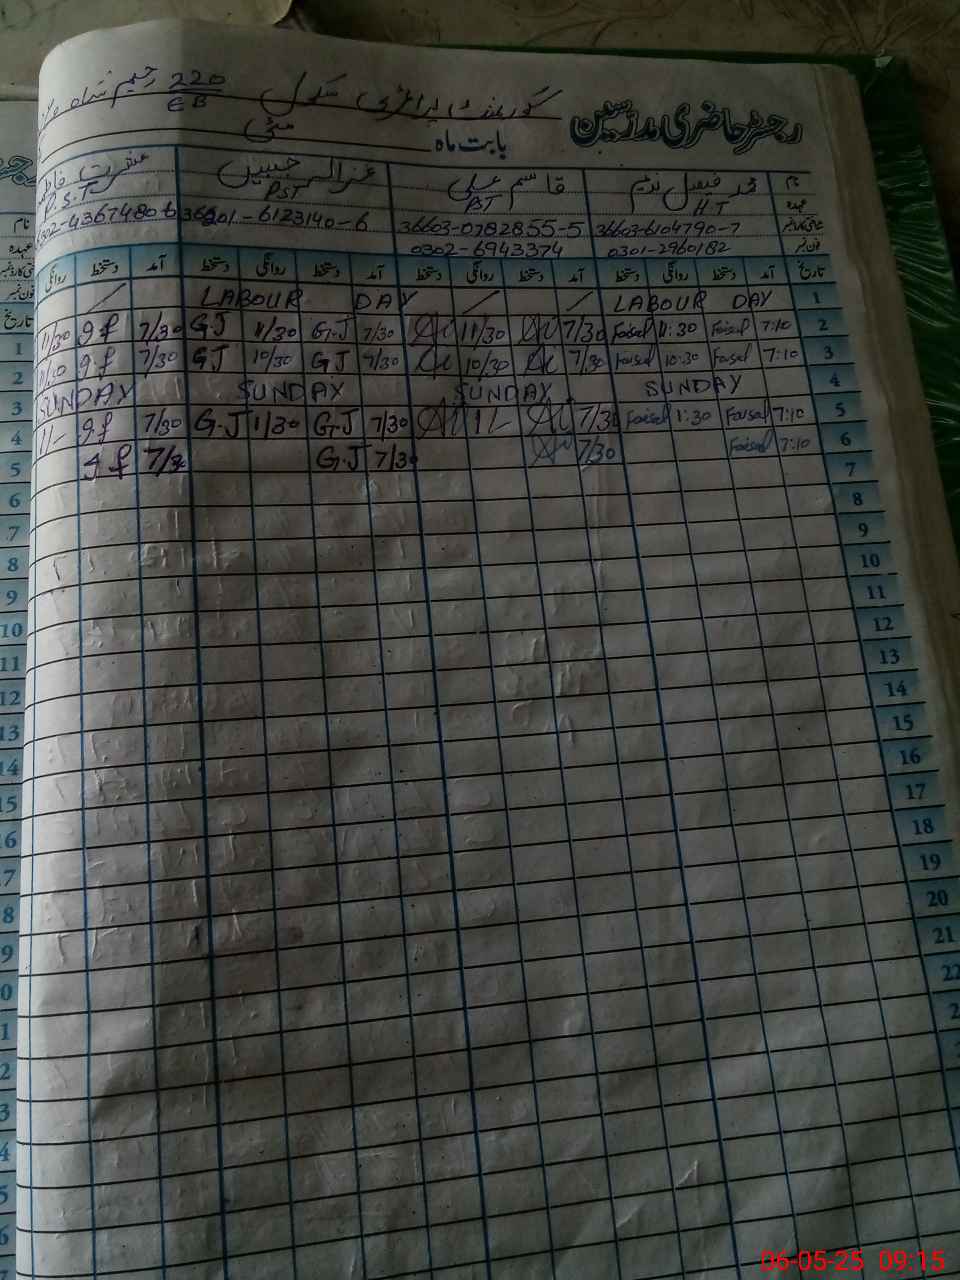 رجسٹر حاضری مدرسین
گورنمنٹ پرائمری سکول 220/EB رحیم شاہ
بابت ماہ مئی
نام محمد فیصل ندیم قاسم علی غزالہ جبیں عشرت فاطمہ
عہدہ HT PST P.S.T
36603-6104790-7 36603-0782855-5 36601-6123140-6
فون نمبر 0301-2960182 0302-6943374
تاریخ آمد دستخط روانگی دستخط آمد دستخط روانگی دستخط آمد دستخط روانگی دستخط آمد دستخط روانگی
1 LABOUR DAY / / LABOUR DAY /
2 7:10 Faisal 11:30 Faisal 7/30 11/30 7/30 G.J 11/30 G.J 7/30 g.f 11/30
3 7:10 Faisal 10:30 Faisal 7/30 10/30 7/30 G J 10/30 G J 7/30 g.f
4 SUNDAY SUNDAY SUNDAY SUNDAY
5 7:10 Faisal 1:30 Faisal 7/30 1/- 7/30 G.J 1/30 G.J 7/30 g.f 1/-
6 7:10 Faisal 7/30 7/30 G.J 7/30 g f
7
8
9
10
11
12
13
14
15
16
17
18
19
20
21
22
06-05-25 09:15